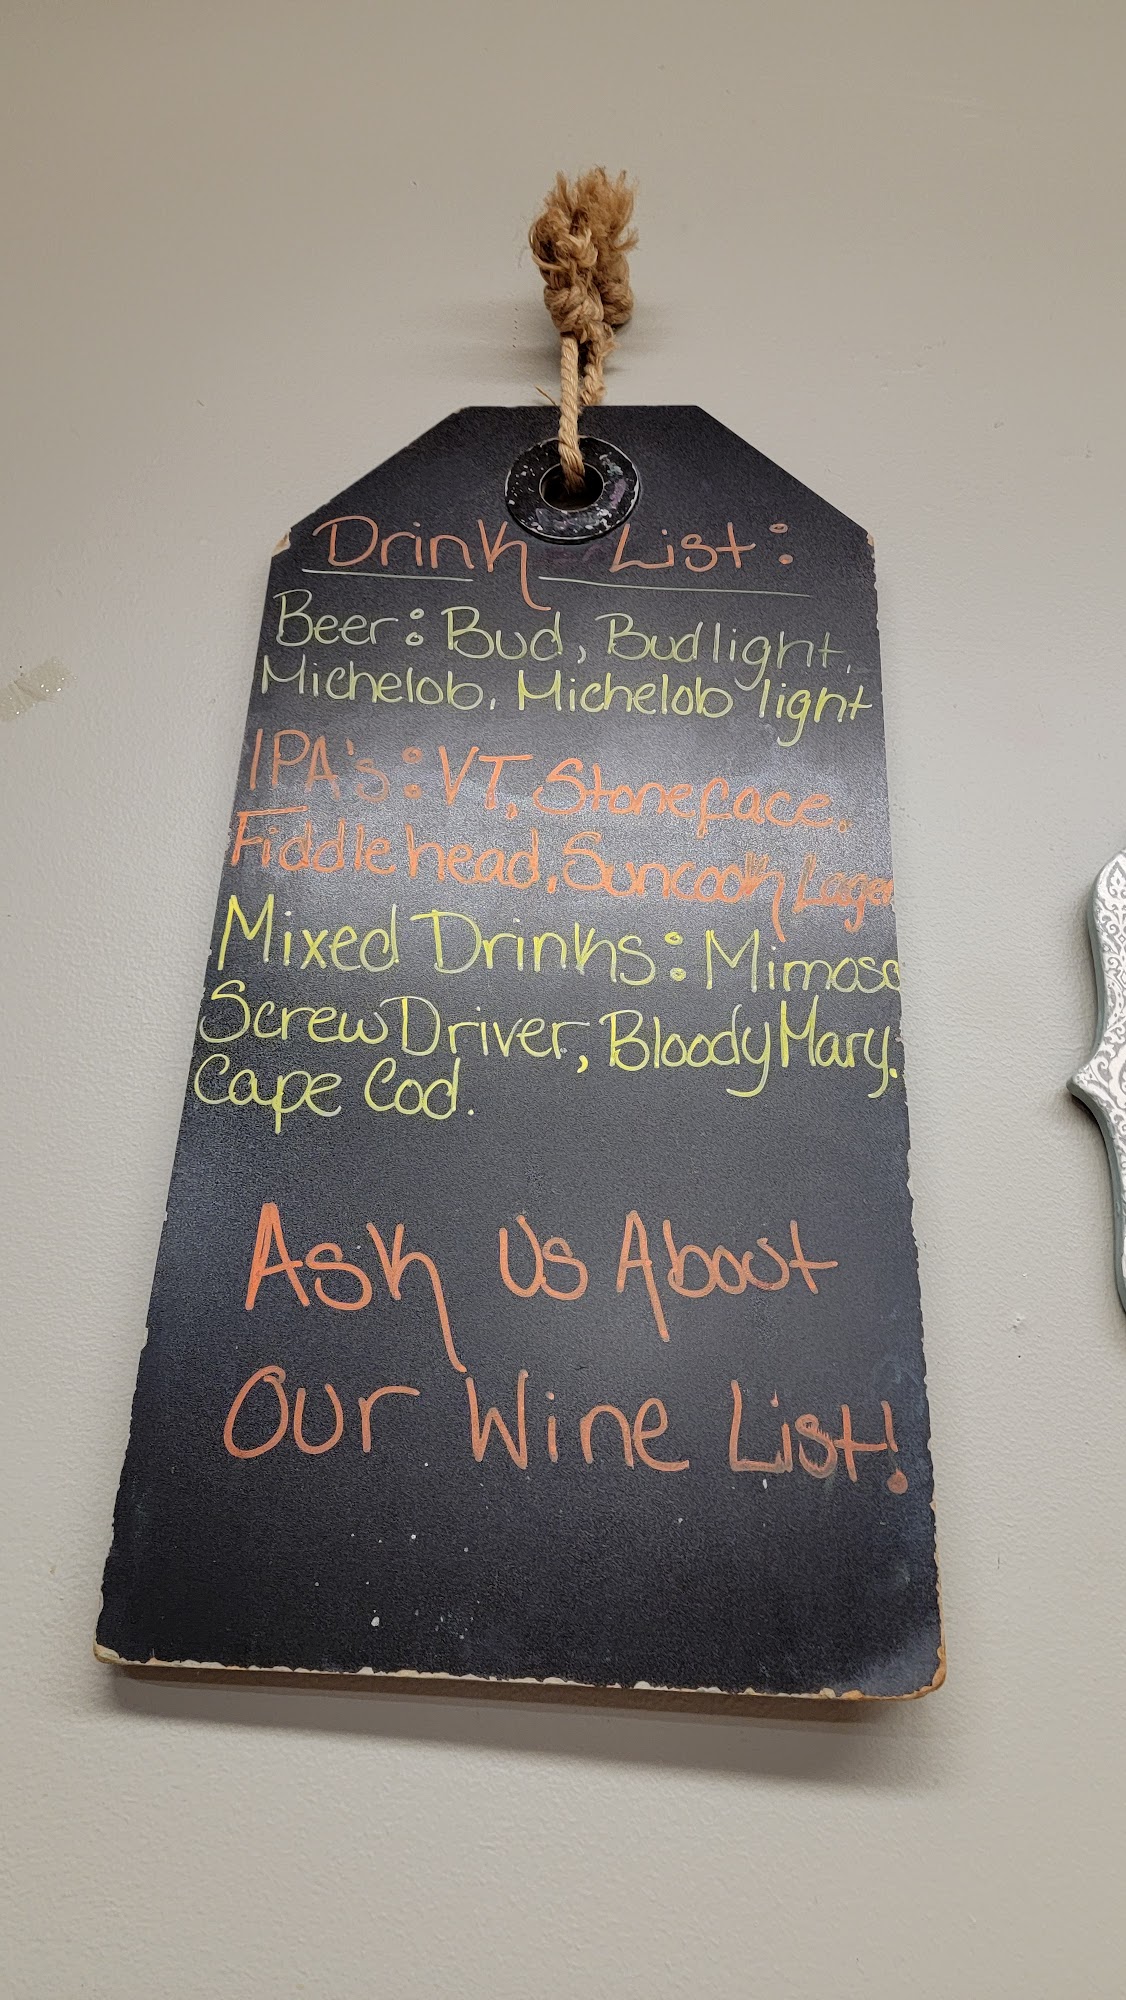 Drink List:
Beer: Bud, Budlight,
Michelob, Michelob light
IPA's: VT, Stoneface,
Fiddlehead, Suncook Lager
Mixed Drinks: Mimosa
Screw Driver, Bloody Mary.
Cape Cod.
Ask Us About
Our Wine List!